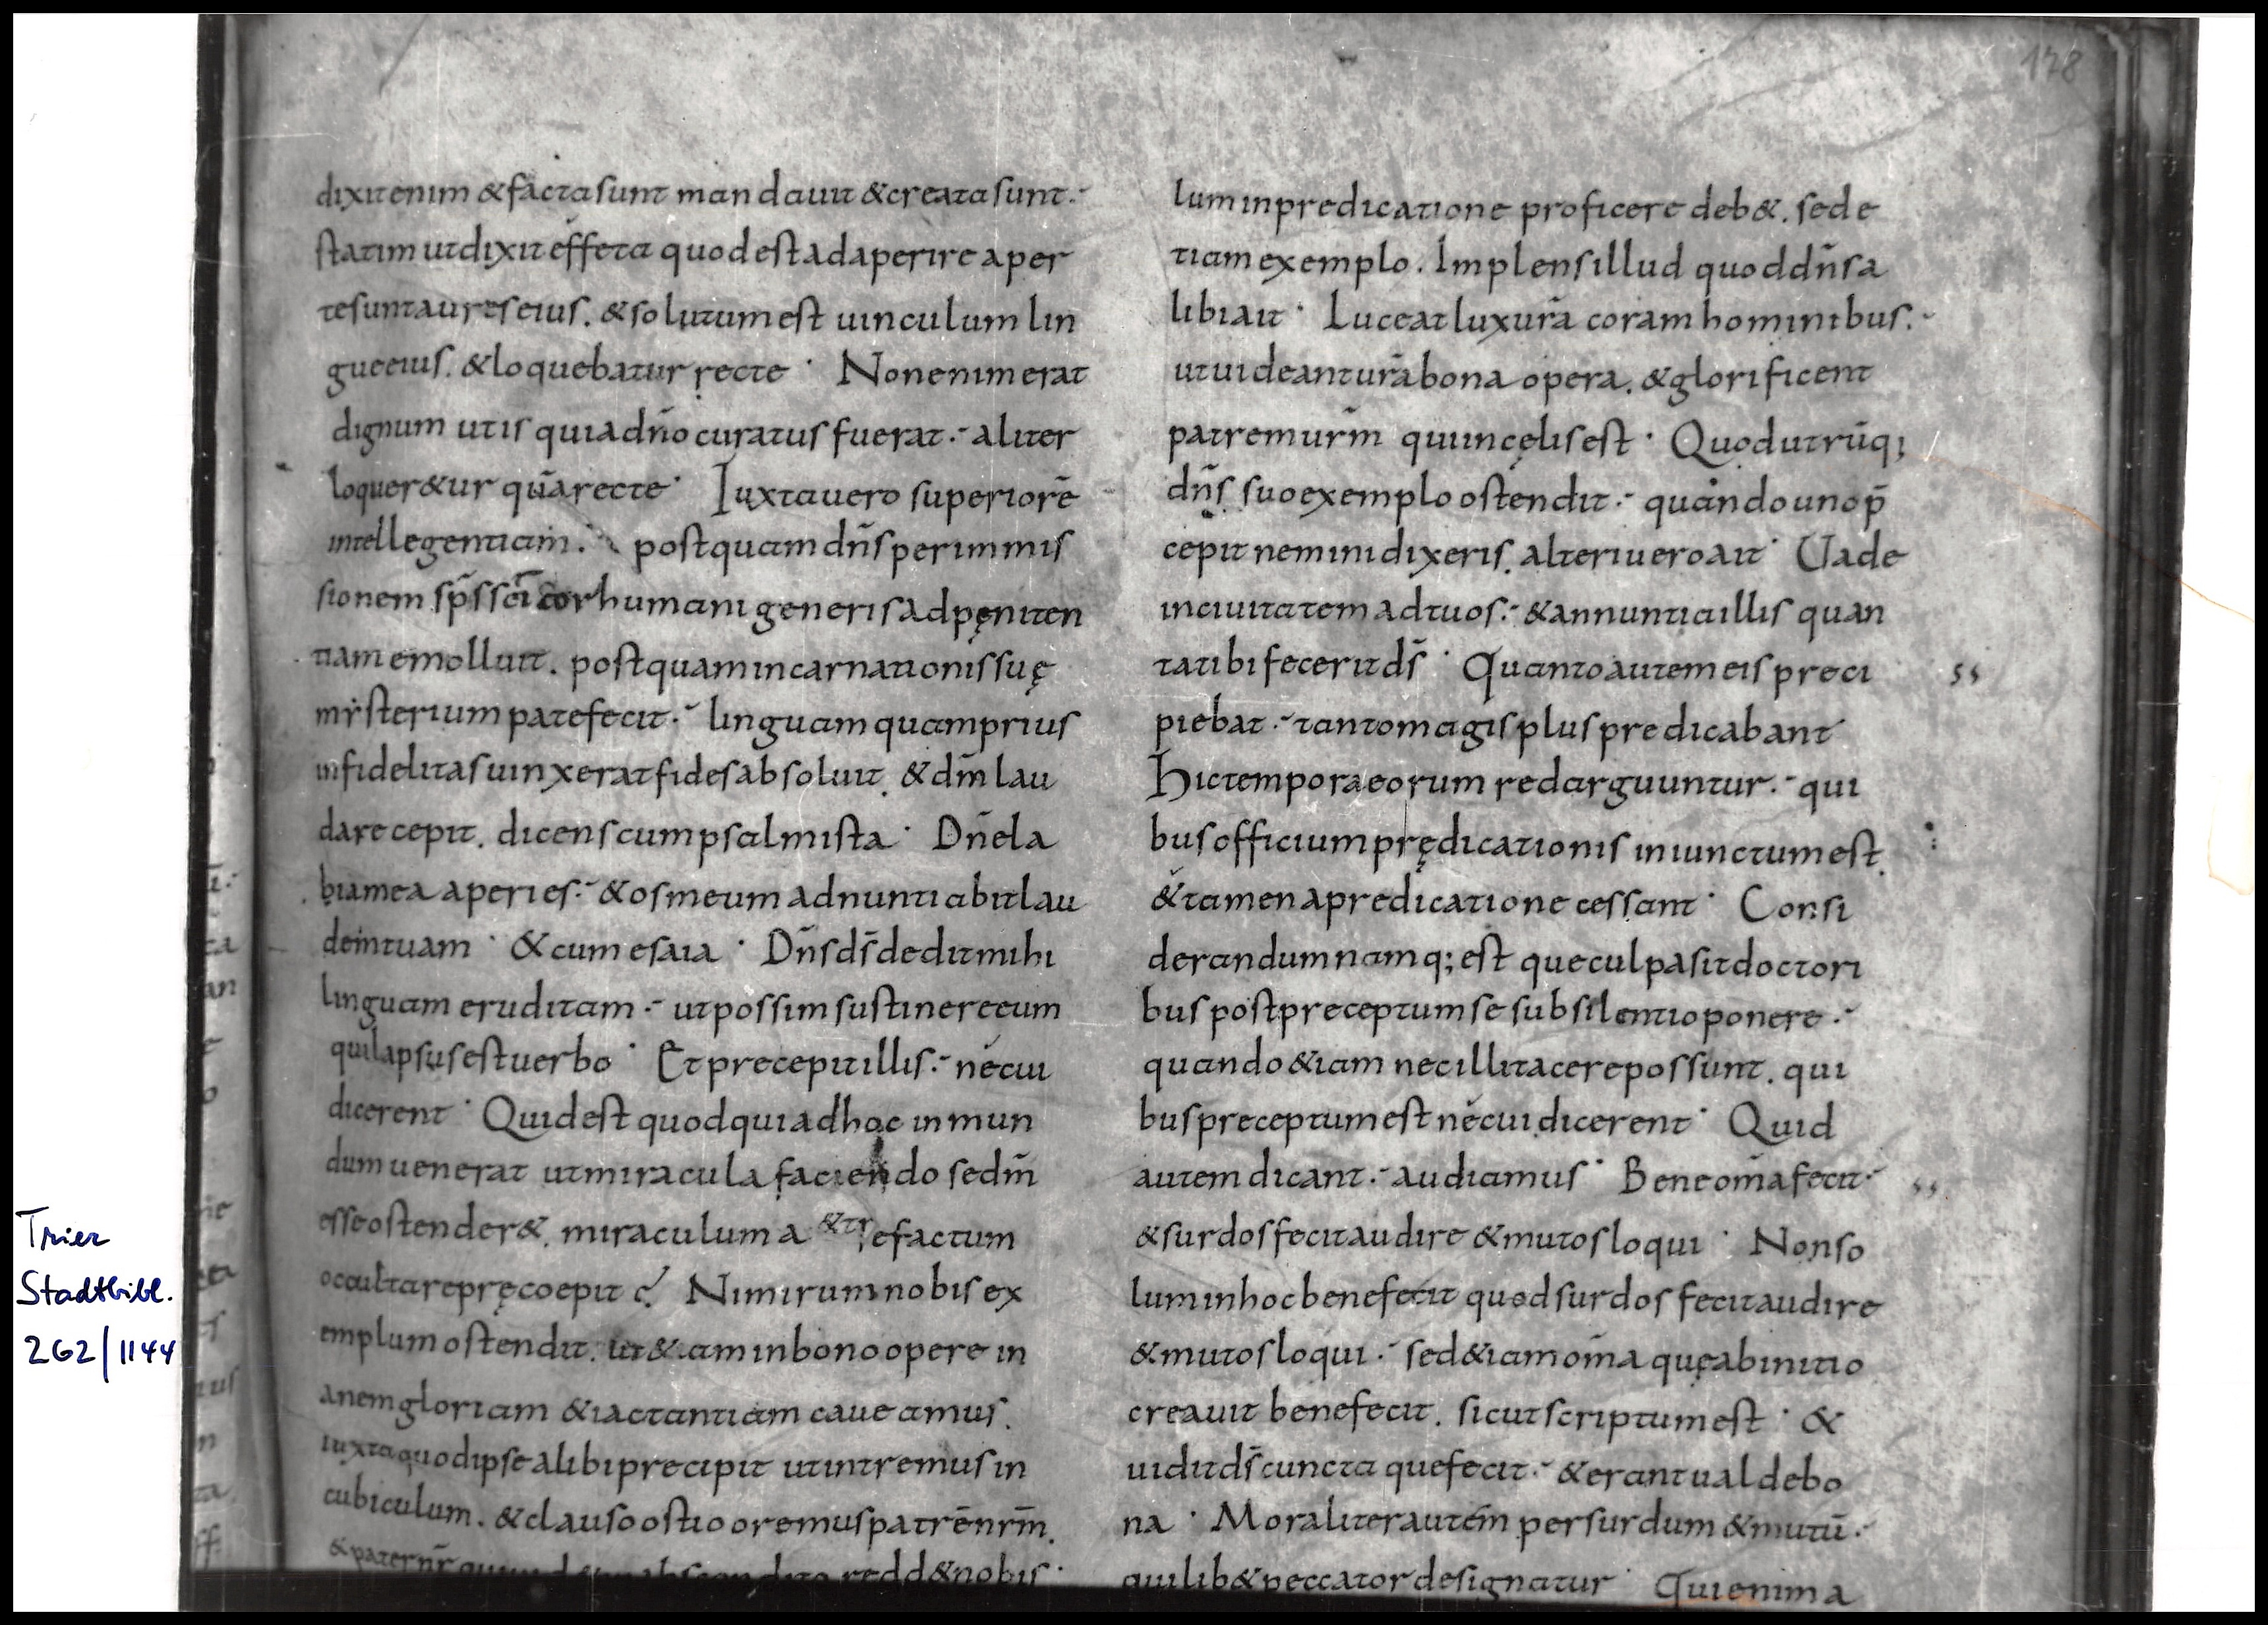 178
dixit enim & facta sunt mandauit & creata sunt.
statim ut dixit effeta quod est adaperire aper
te sunt aures eius. & solutum est uinculum lin
gue eius. & loquebatur recte · Non enim erat
dignum ut is qui a dño curatus fuerat. aliter
loquer&ur quā recte · Iuxta uero superiorē
intellegentiam. postquam dñs per immis
sionem sp̄s sc̄i cor humani generis ad pęniten
tiam emolluit. postquam incarnationis suę
mẏsterium patefecit. linguam quam prius
infidelitas uinxerat fides absoluit. & dm̄ lau
dare cepit. dicens cum psalmista · Dñe la
bia mea aperies. & os meum adnuntiabit lau
dem tuam · & cum esaia · Dñs ds̄ dedit mihi
linguam eruditam. ut possim sustinere eum
qui lapsus est uerbo · Et precepit illis. ne cui
dicerent · Quid est quod qui ad hoc in mun
dum uenerat ut miracula faciendo se dm̄
esse ostender&. miraculum a &tr efactum
occultare pręcoepit ? Nimirum nobis ex
emplum ostendit. ut &iam in bono opere in
anem gloriam & iactantiam caueamus.
iuxta quod ipse alibi precipit ut intremus in
cubiculum. & clauso ostio oremus patrē nrm̄.
& pater nr̄ qui abscondito redd& nobis ·
lum in predicatione proficere deb&. sed e
tiam exemplo. Implens illud quod dñs a
libi ait · Luceat lux ura̅ coram hominibus.
ut uideant ura̅ bona opera. & glorificent
patrem urm̄ qui in cęlis est · Quod utrūq;
dñs suo exemplo ostendit. quando uno p̄
cepit nemini dixeris. alteri uero ait · Uade
in ciuitatem ad tuos. & annuntia illis quan
ta tibi fecerit ds̄ · Quanto autem eis preci
piebat. tanto magis plus predicabant
Hic tempora eorum redarguuntur. qui
bus officium prędicationis iniunctum est.
& tamen a predicatione cessant · Consi
derandum namq; est que culpa sit doctori
bus post preceptum se sub silentio ponere.
quando &iam nec illi tacere possunt. qui
bus preceptum est ne cui dicerent · Quid
autem dicant. audiamus · Bene om̄a fecit.
& surdos fecit audire & mutos loqui · Non so
lum in hoc bene fecit quod surdos fecit audire
& mutos loqui. sed &iam om̄a quę ab initio
creauit bene fecit. sicut scriptum est · &
uidit ds̄ cuncta que fecit. & erant ualde bo
na · Moraliter autem per surdum & mutū.
quilib& peccator designatur · Qui enim a
Trier
Stadtbibl.
262/1144